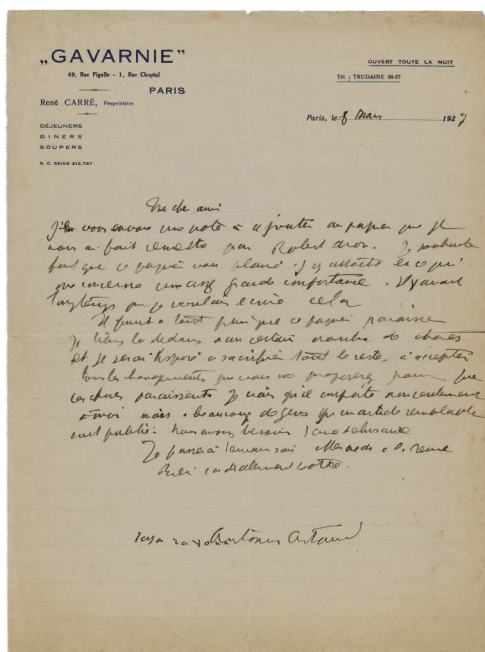 „GAVARNIE”
49, Rue Pigalle - 1, Rue Chaptal
PARIS
René CARRÉ, Propriétaire
DÉJEUNERS
DINERS
SOUPERS
R. C. SEINE 212.767
OUVERT TOUTE LA NUIT
Tél. : TRUDAINE 00-57
Paris, le 8 Mars 1927
cher ami
vous envoie une note à ajouter au papier que je
vous ai fait remettre par Robert Aron. Je souhaite
fort que ce papier vous plaise. J'y attache en ce qui
me concerne une assez grande importance. Il y avait
longtemps que je voulais écrire cela
Il faut à tout prix que ce papier paraisse
Je tiens là dedans à un certain nombre de choses
et je serai disposé à sacrifier tout le reste, à accepter
tous les changements que vous me proposerez pour que
ces choses paraissent. Je crois qu'il importe non seulement
à moi mais à beaucoup de gens qu'un article semblable
soit publié. Nous avons besoin
Je passe
cordialement votre.
Antonin Artaud